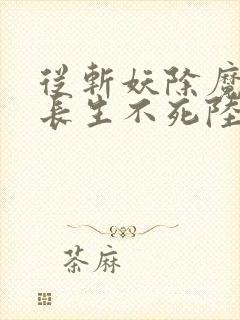 從斬妖除魔
長生不死陸
茶麻